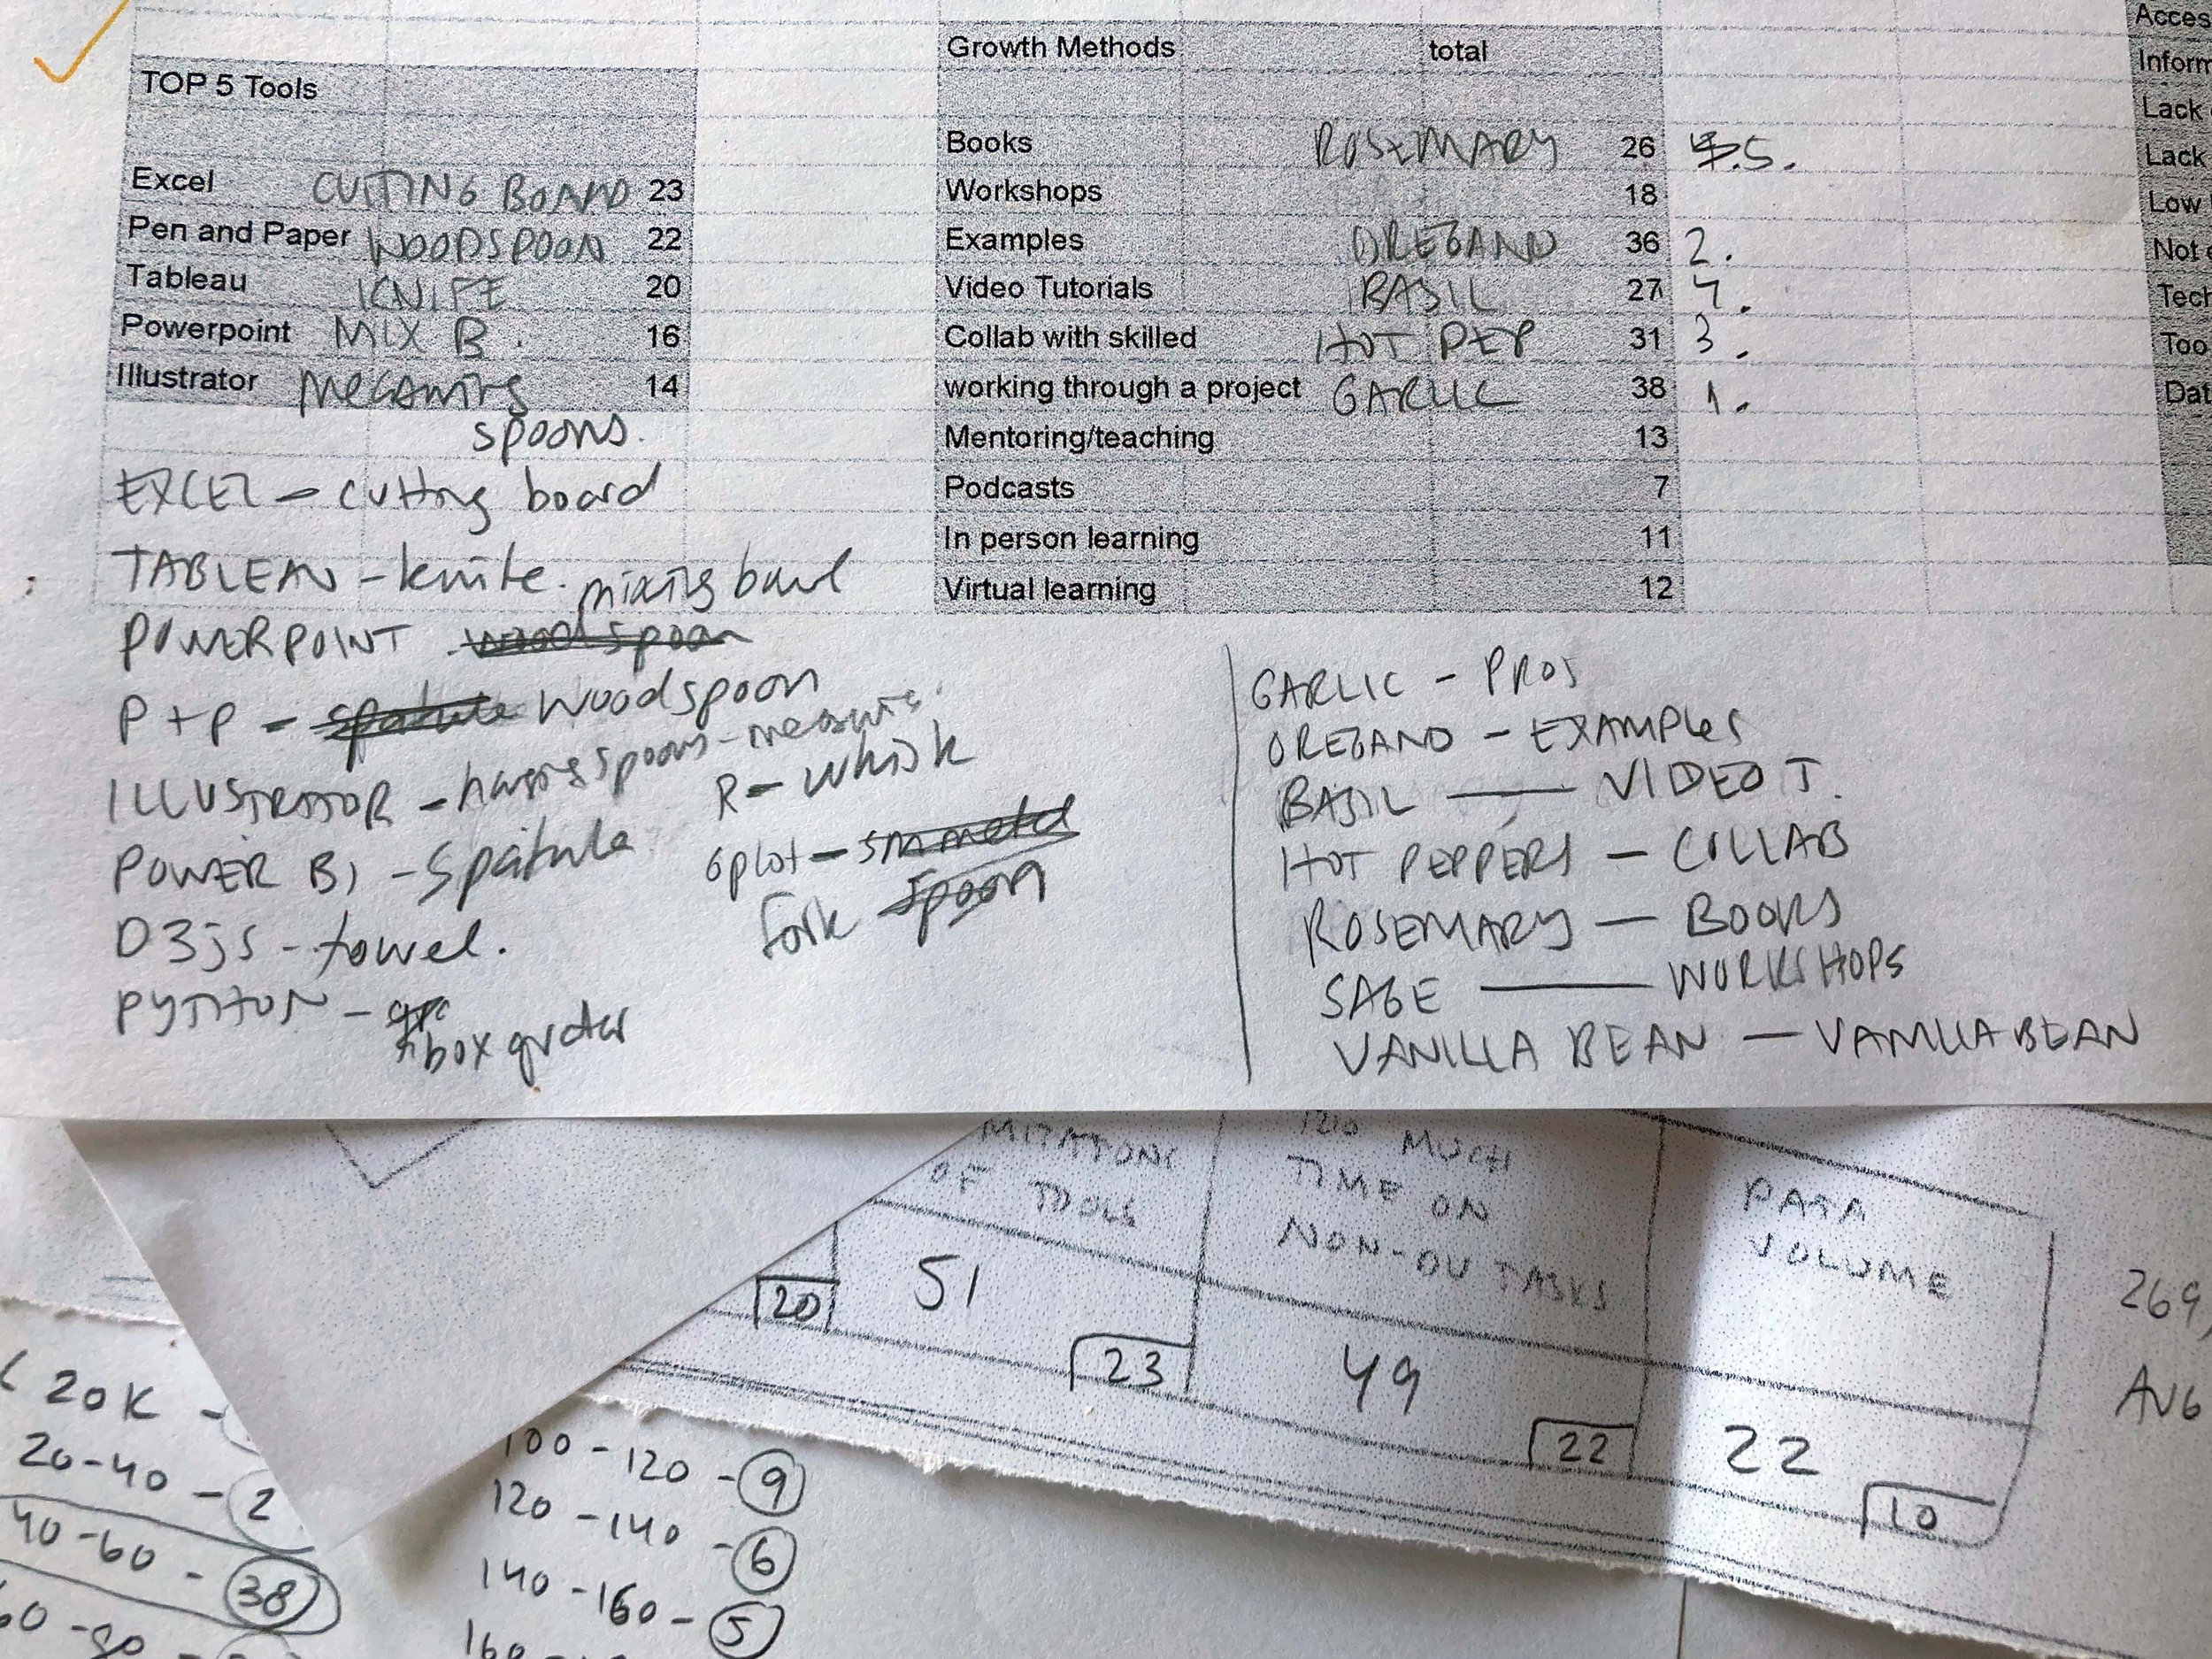 TOP 5 Tools
Excel CUTTING BOARD 23
Pen and Paper WOODSPOON 22
Tableau KNIFE 20
Powerpoint MIX B. 16
Illustrator 14
spoons.
EXCEL - cutting board
TABLEAU - knife.
mixing bowl
POWERPOINT - wood spoon
P+P - spatula woodspoon
ILLUSTRATOR - spoons - measuring
POWER BI - Spatula
D3js - towel.
PYTHON -
box grater
R - whisk
Gplot - sm metal
fork spoon
Growth Methods total
Books ROSEMARY 26 5.
Workshops 18
Examples OREGANO 36 2.
Video Tutorials BASIL 27 4.
Collab with skilled HOT PEP 31 3.
working through a project GARLIC 38 1.
Mentoring/teaching 13
Podcasts 7
In person learning 11
Virtual learning 12
GARLIC - PROJ
OREGANO - EXAMPLES
BASIL — VIDEO T.
HOT PEPPERS — COLLAB
ROSEMARY — BOOKS
SAGE — WORKSHOPS
VANILLA BEAN — VANILLA BEAN
Acces
Inform
Lack
Lack
Low
Not
Tech
Too
Dat
MITATIONS
OF TOOLS
20
51
23
TOO MUCH
TIME ON
NON-DV TASKS
49
22
DATA
VOLUME
22
10
269
AVG
20K -
20-40 - 2
40-60 - 38
60-80 -
100-120 - 9
120-140 - 6
140-160 - 5
160